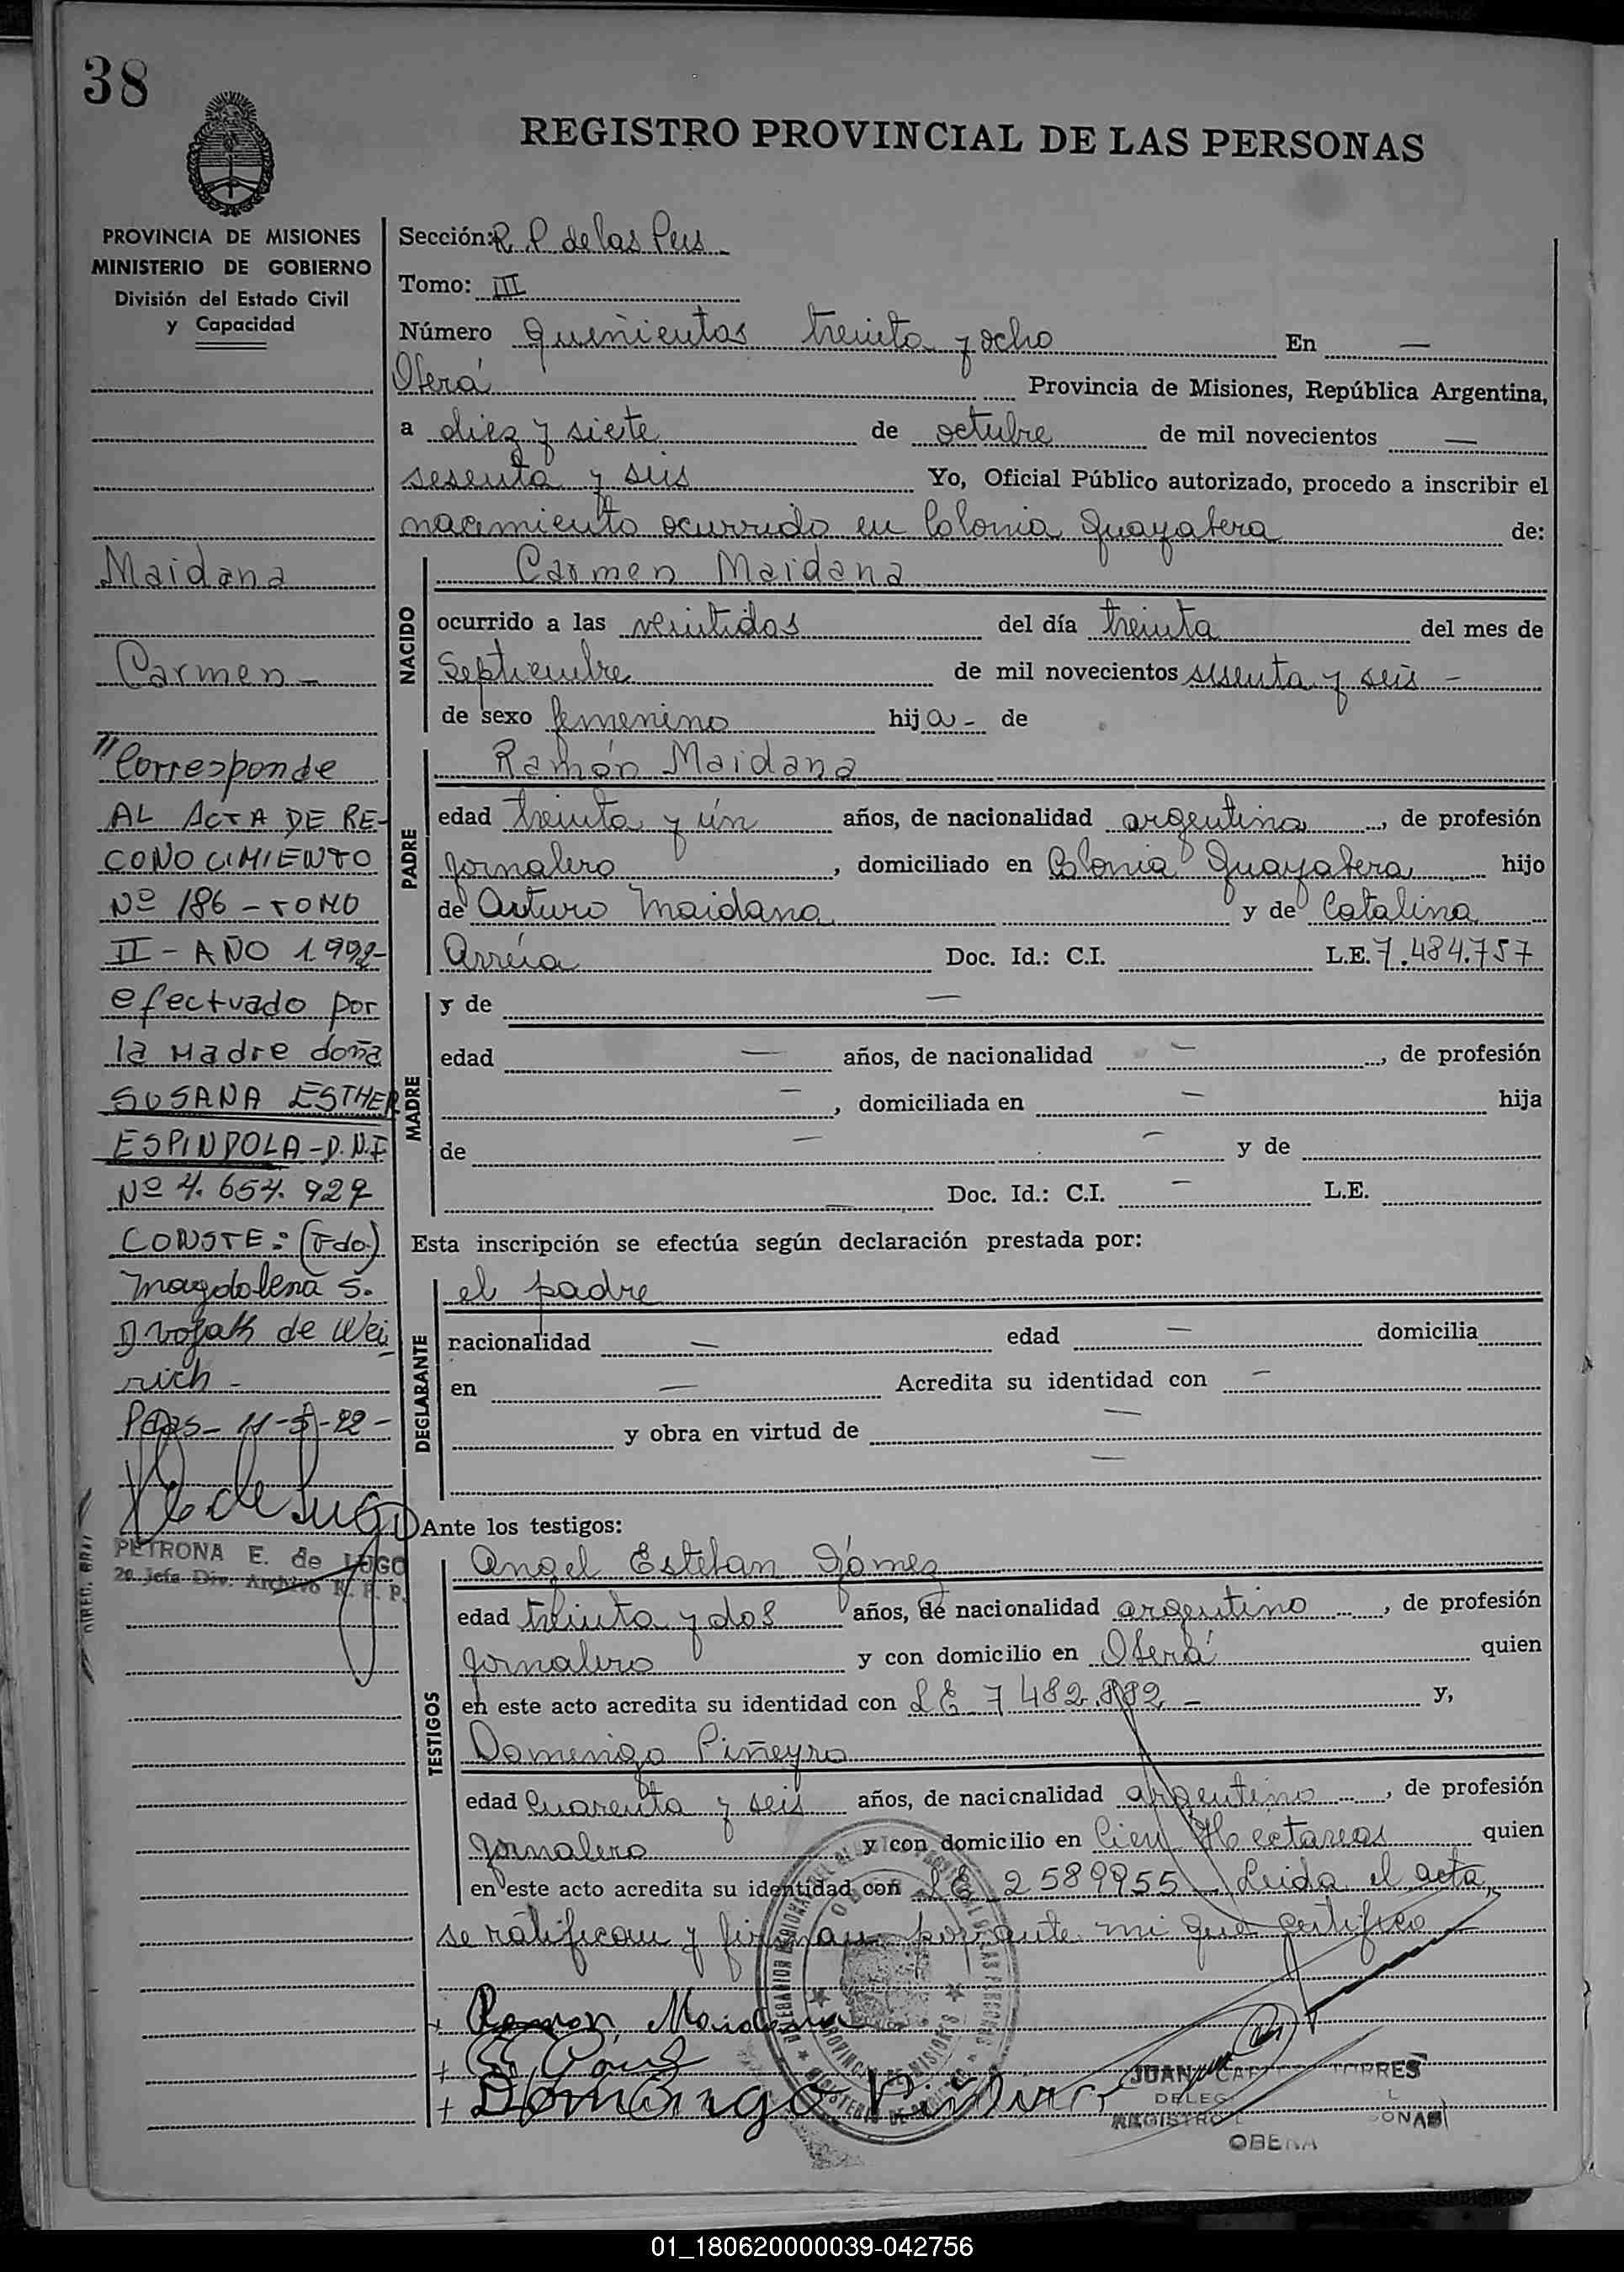 38
REGISTRO PROVINCIAL DE LAS PERSONAS
PROVINCIA DE MISIONES
MINISTERIO DE GOBIERNO
División del Estado Civil
y Capacidad
Sección: R. P. de las Pers
Tomo: III
Número quinientos treinta y ocho En —
Oberá Provincia de Misiones, República Argentina,
a diez y siete de octubre de mil novecientos —
sesenta y seis Yo, Oficial Público autorizado, procedo a inscribir el
nacimiento ocurrido en Colonia Guayabera de:
Maidana
Carmen -
NACIDO
Carmen Maidana
ocurrido a las veintidos del día treinta del mes de
Septiembre de mil novecientos sesenta y seis -
de sexo femenino hija - de
PADRE
Ramón Maidana
edad treinta y ún años, de nacionalidad argentina, de profesión
jornalero, domiciliado en Colonia Guayabera hijo
de Arturo Maidana y de Catalina
Doc. Id.: C.I. L.E. 7.484.757
MADRE
y de —
edad — años, de nacionalidad —, de profesión
—, domiciliada en — hija
de — — y de
— Doc. Id.: C.I. — L.E.
"Corresponde
AL ACTA DE RE-
CONOCIMIENTO
Nº 186 - TOMO
II - AÑO 1992-
efectuado por
la Madre doña
SUSANA ESTHER
ESPINDOLA - D.N.I
Nº 4.654.927
CONSTE: (Fdo)
Magdalena S.
de Wei
rich -
Pdas- 11-5-92-
PETRONA E. de LUGO
2a Jefa Div. Archivo R. P. P.
Esta inscripción se efectúa según declaración prestada por:
DECLARANTE
el padre
nacionalidad — edad — domicilia
en — Acredita su identidad con —
y obra en virtud de —
—
Ante los testigos:
TESTIGOS
Angel Esteban Gómez
edad treinta y dos años, de nacionalidad argentino, de profesión
jornalero y con domicilio en Oberá quien
en este acto acredita su identidad con LE 7 482. - y,
Domingo Piñeyro
edad cuarenta y seis años, de nacionalidad argentino, de profesión
jornalero y con domicilio en Cien Hectareas quien
en este acto acredita su identidad con LE 2589955 - Leida el acta,
se ratifican y firman por ante mi que certifico
Ramon Maidana
Domingo
JUAN TORRES
REGISTRO
OBERA
01_180620000039-042756